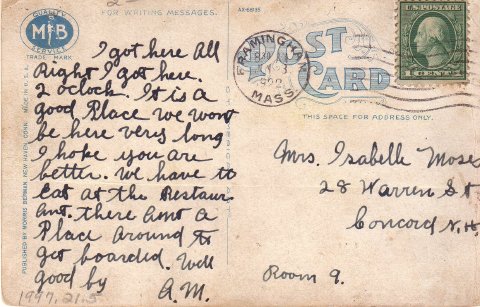 2
QUALITY
M&B
SERVICE
TRADE MARK
FOR WRITING MESSAGES.
AX-68135
POST CARD
FRAMINGHAM
MASS.
U.S. POSTAGE
1 CENT 1
THIS SPACE FOR ADDRESS ONLY.
PUBLISHED BY MORRIS BERMAN, NEW HAVEN, CONN. MADE IN U.S.A.
I got here All
Right I got here.
2 oclock. It is a
good Place we wont
be here very long
I hope you are
better. we have to
Eat at the Restaur
ant. there aint a
Place around to
get boarded. Well
good by
A.M.
1997.21.5
Mrs. Isabelle Moses
28 Warren St
Concord N.H.
Room 9.